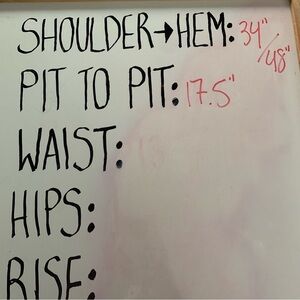 SHOULDER→HEM: 34"/48"
PIT TO PIT: 17.5"
WAIST:
HIPS:
RISE: